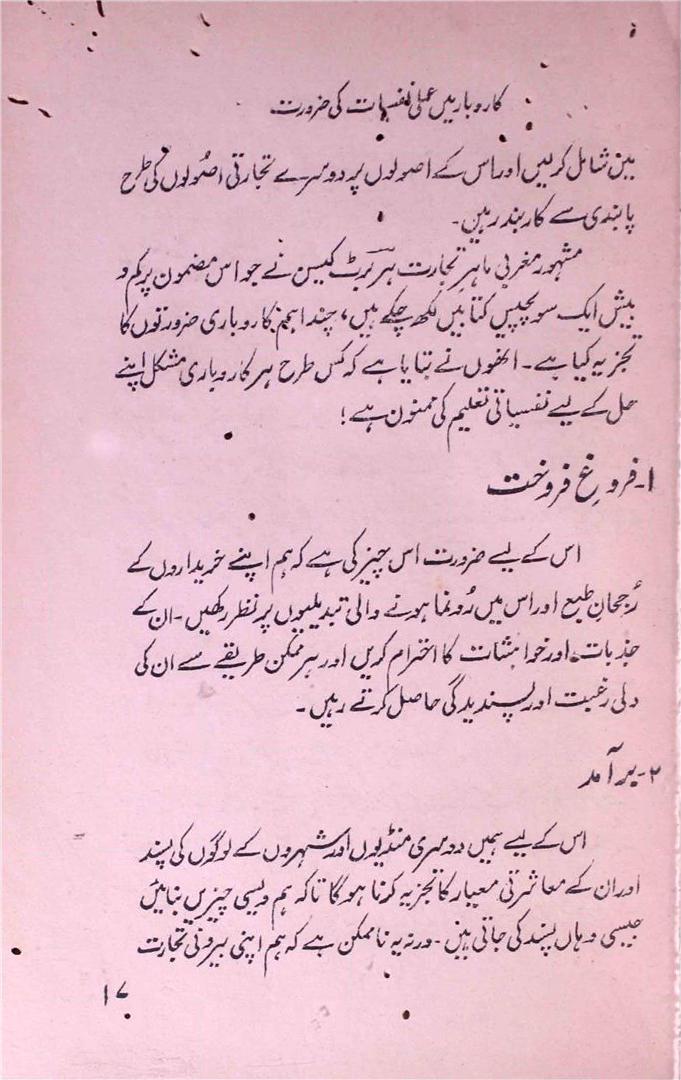 کاروبار میں عملی نفسیات کی ضرورت
میں شامل کرلیں اور اس کے اصولوں پر دوسرے تجارتی اصولوں کی طرح
پابندی سے کاربند رہیں۔
مشہور مغربی ماہرِ تجارت ہربرٹ کیسن نے جو اس مضمون پر کم و
بیش ایک سو پچیس کتابیں لکھ چکے ہیں، چند اہم کاروباری ضرورتوں کا
تجزیہ کیا ہے۔ انھوں نے بتایا ہے کہ کس طرح ہر کاروباری مشکل اپنے
حل کے لیے نفسیاتی تعلیم کی ممنون ہے!
۱۔ فروغِ فروخت
اس کے لیے ضرورت اس چیز کی ہے کہ ہم اپنے خریداروں کے
رُجحانِ طبع اور اس میں رُونما ہونے والی تبدیلیوں پر نظر رکھیں۔ ان کے
جذبات اور خواہشات کا احترام کریں اور ہر ممکن طریقے سے ان کی
دلی رغبت اور پسندیدگی حاصل کرتے رہیں۔
۲۔ برآمد
اس کے لیے ہمیں دوسری منڈیوں اور شہروں کے لوگوں کی پسند
اور ان کے معاشرتی معیار کا تجزیہ کرنا ہوگا تاکہ ہم ویسی چیزیں بنائیں
جیسی وہاں پسند کی جاتی ہیں۔ ورنہ یہ ناممکن ہے کہ ہم اپنی بیرونی تجارت
۱۷